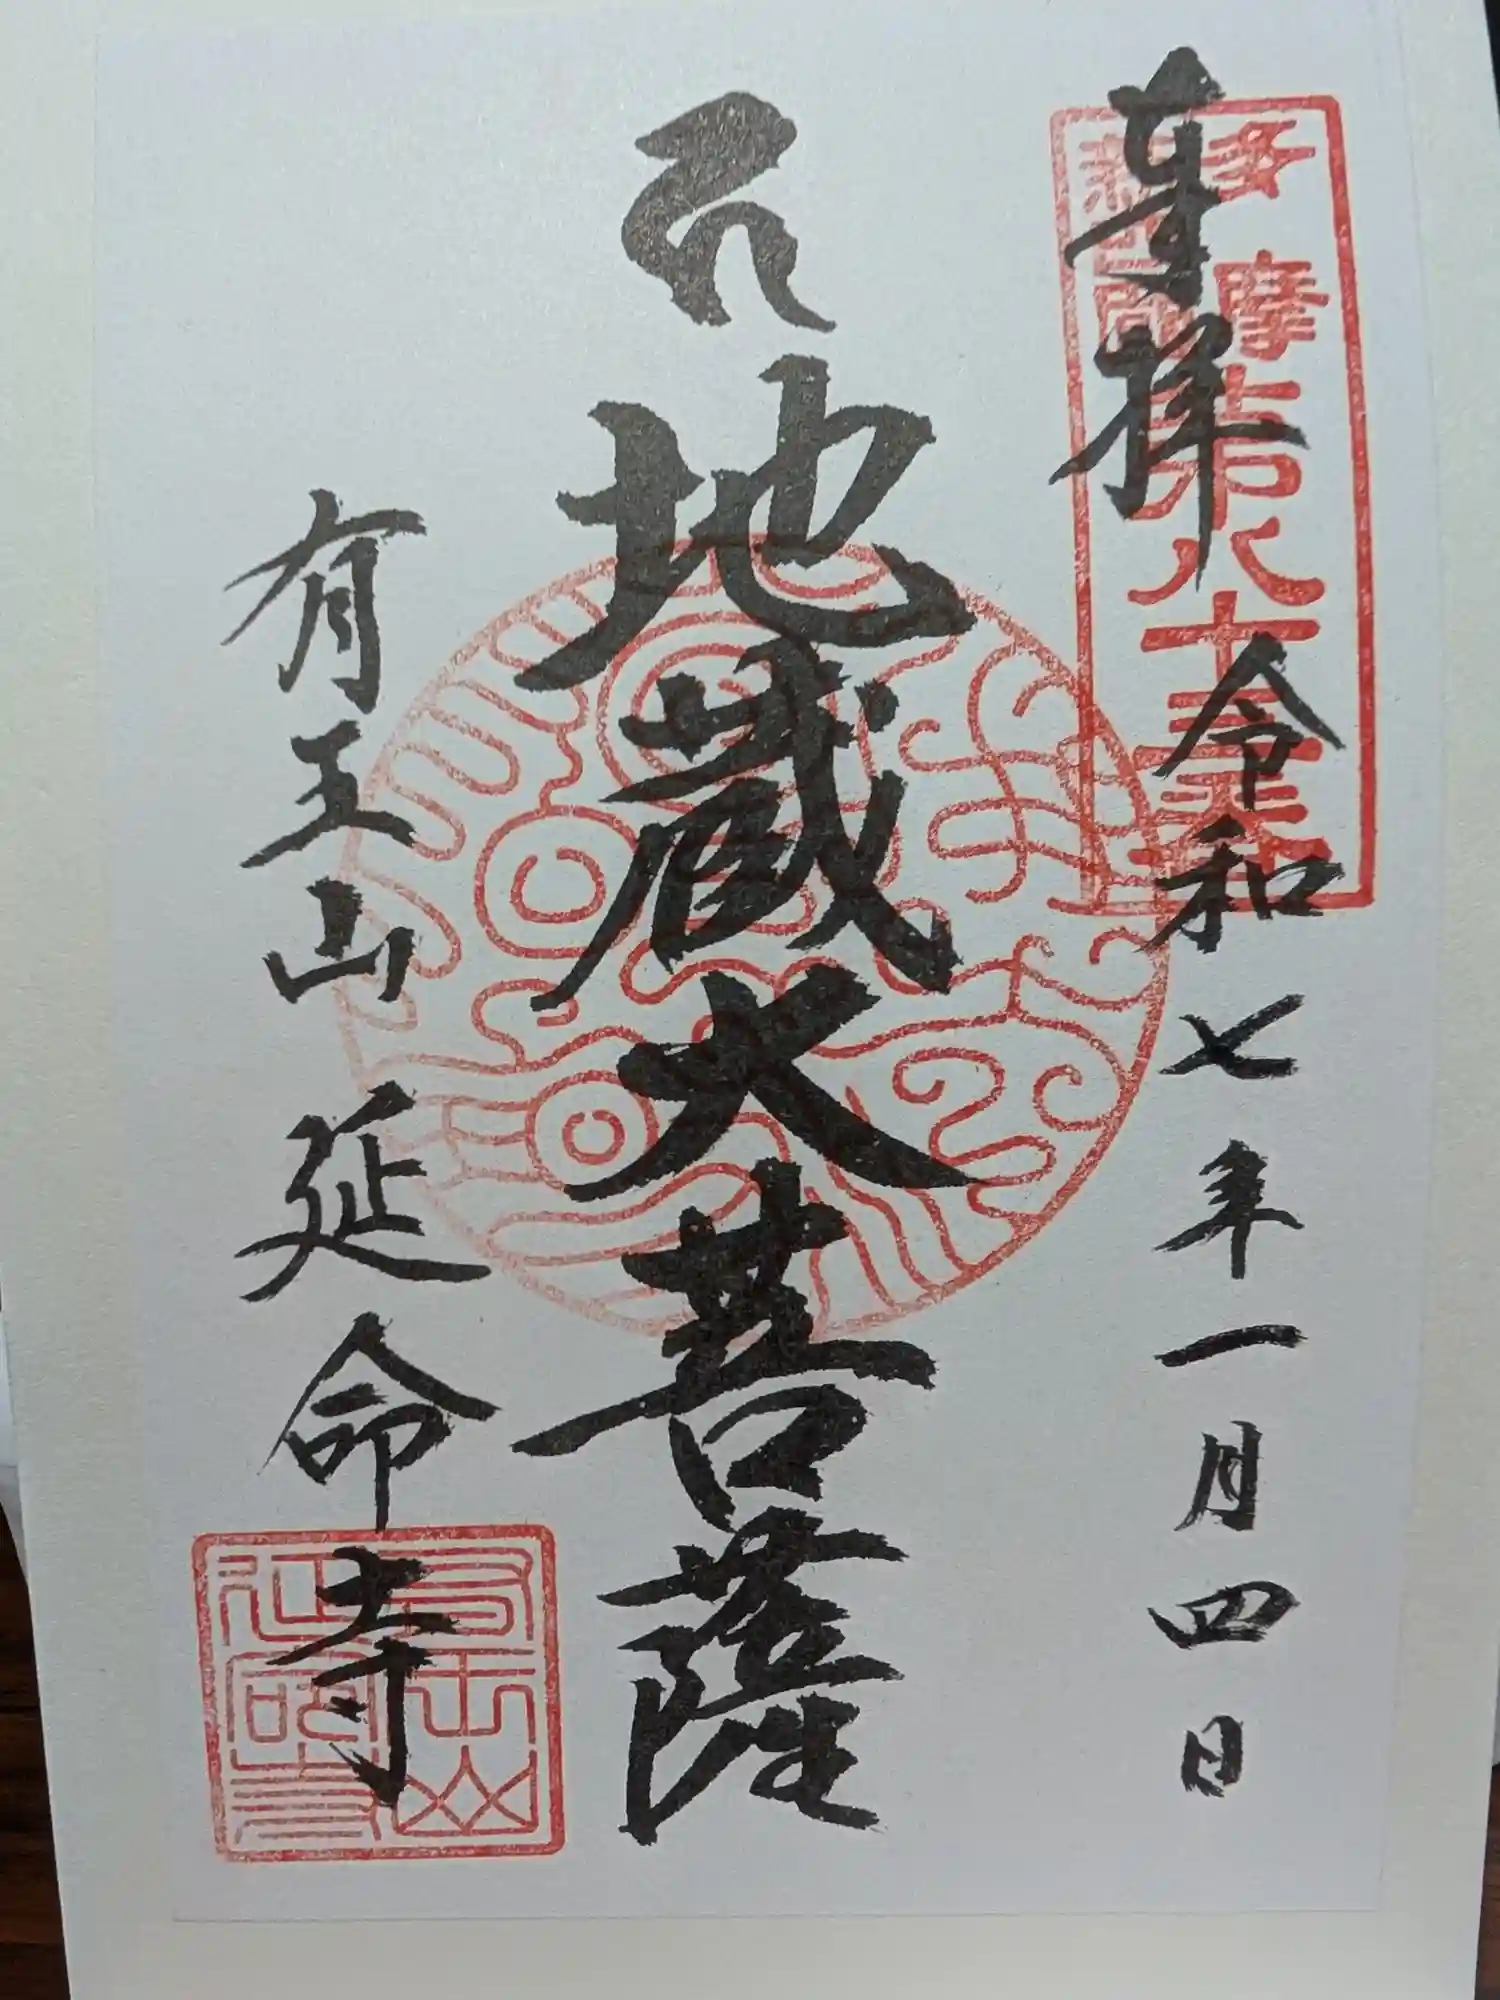 奉拝
令和七年一月四日
多摩
第八十三番
地蔵大菩薩
有王山 延命寺